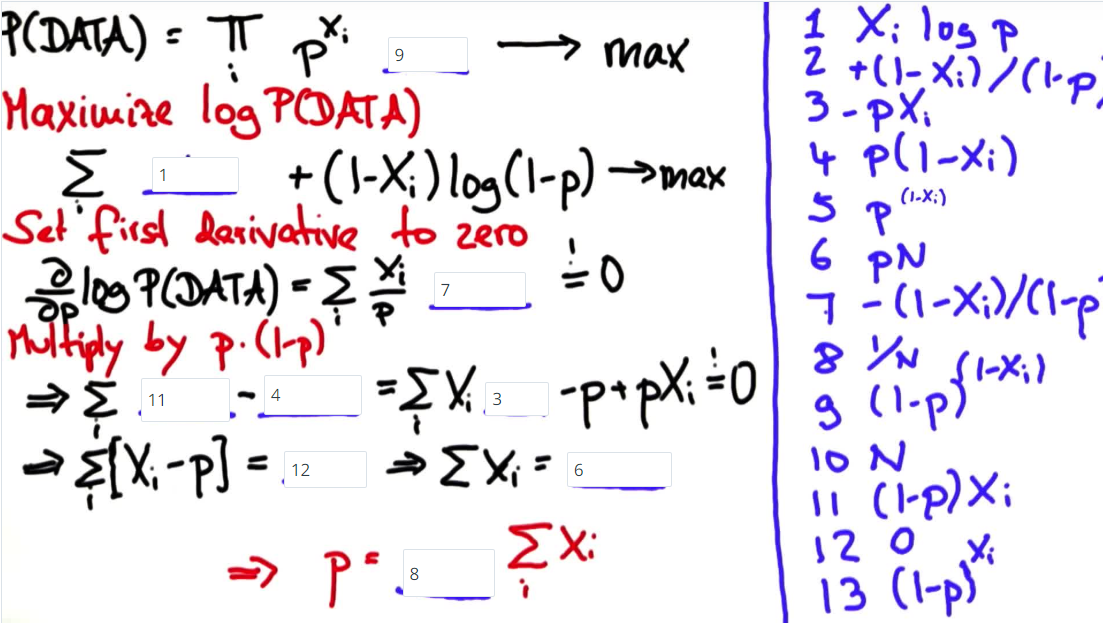 P(DATA) = Π_i p^{X_i} 9 → max
Maximize log P(DATA)
Σ_i 1 + (1-X_i) log(1-p) → max
Set first derivative to zero
∂/∂p log P(DATA) = Σ_i X_i/p 7 =! 0
Multiply by p·(1-p)
⇒ Σ_i 11 - 4 = Σ_i X_i 3 -p+pX_i =! 0
⇒ Σ_i [X_i - p] = 12 ⇒ Σ X_i = 6
⇒ p = 8 Σ_i X_i
1 X_i log p
2 +(1-X_i)/(1-p)
3 -pX_i
4 p(1-X_i)
5 p^{(1-X_i)}
6 pN
7 -(1-X_i)/(1-p
8 1/N
9 (1-p)^{(1-X_i)}
10 N
11 (1-p)X_i
12 0
13 (1-p)^{X_i}